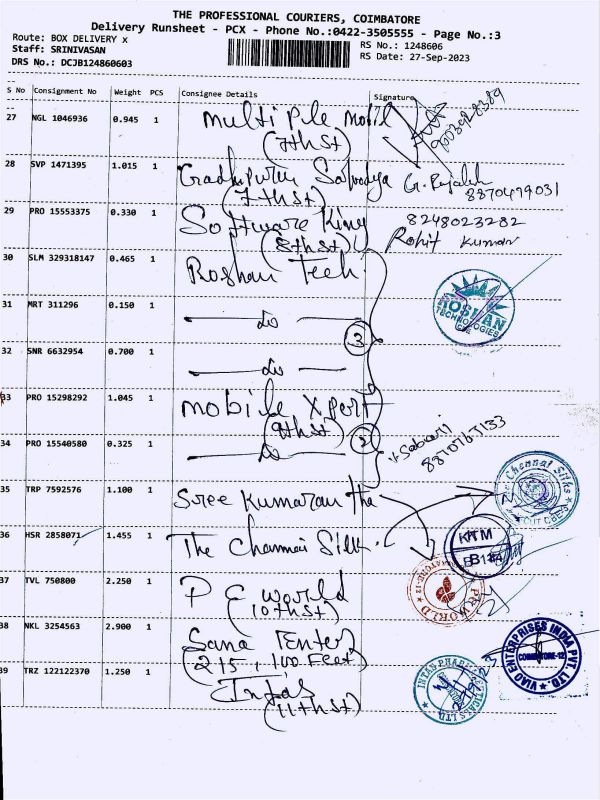 THE PROFESSIONAL COURIERS, COIMBATORE
Delivery Runsheet - PCX - Phone No.:0422-3505555 - Page No.:3
Route: BOX DELIVERY x
RS No.: 1248606
Staff: SRINIVASAN
RS Date: 27-Sep-2023
DRS No.: DCJB124860603
S No Consignment No Weight PCS Consignee Details Signature
27 NGL 1046936 0.945 1 Multiple Mobil
(7th st)
28 SVP 1471395 1.015 1 Sarvodya
8870479031
(7th st)
29 PRO 15553375 0.330 1 Software King 8248023282
(8th st) Rohit Kumar
30 SLM 329318147 0.465 1 Roshan Tech
ROSHAN
TECHNOLOGIES
CBE
31 MRT 311296 0.150 1 Do
3
32 SNR 6632954 0.700 1 Do
33 PRO 15298292 1.045 1 Mobile Xpert
(9th st)
2
34 PRO 15540580 0.325 1 Do
35 TRP 7592576 1.100 1 Sree Kumaran the
The Chennai Silks
36 HSR 2858071 1.455 1 The Chennai Silk
KTM
37 TVL 750800 2.250 1 P C World
(10th st)
PC WORLD
38 NKL 3254563 2.900 1 Sana Enter
(215, 100 Feet)
ENTERPRISES INDIA PVT. LTD.
COIMBATORE-12
39 TRZ 122122370 1.250 1 Intas
(11th st)